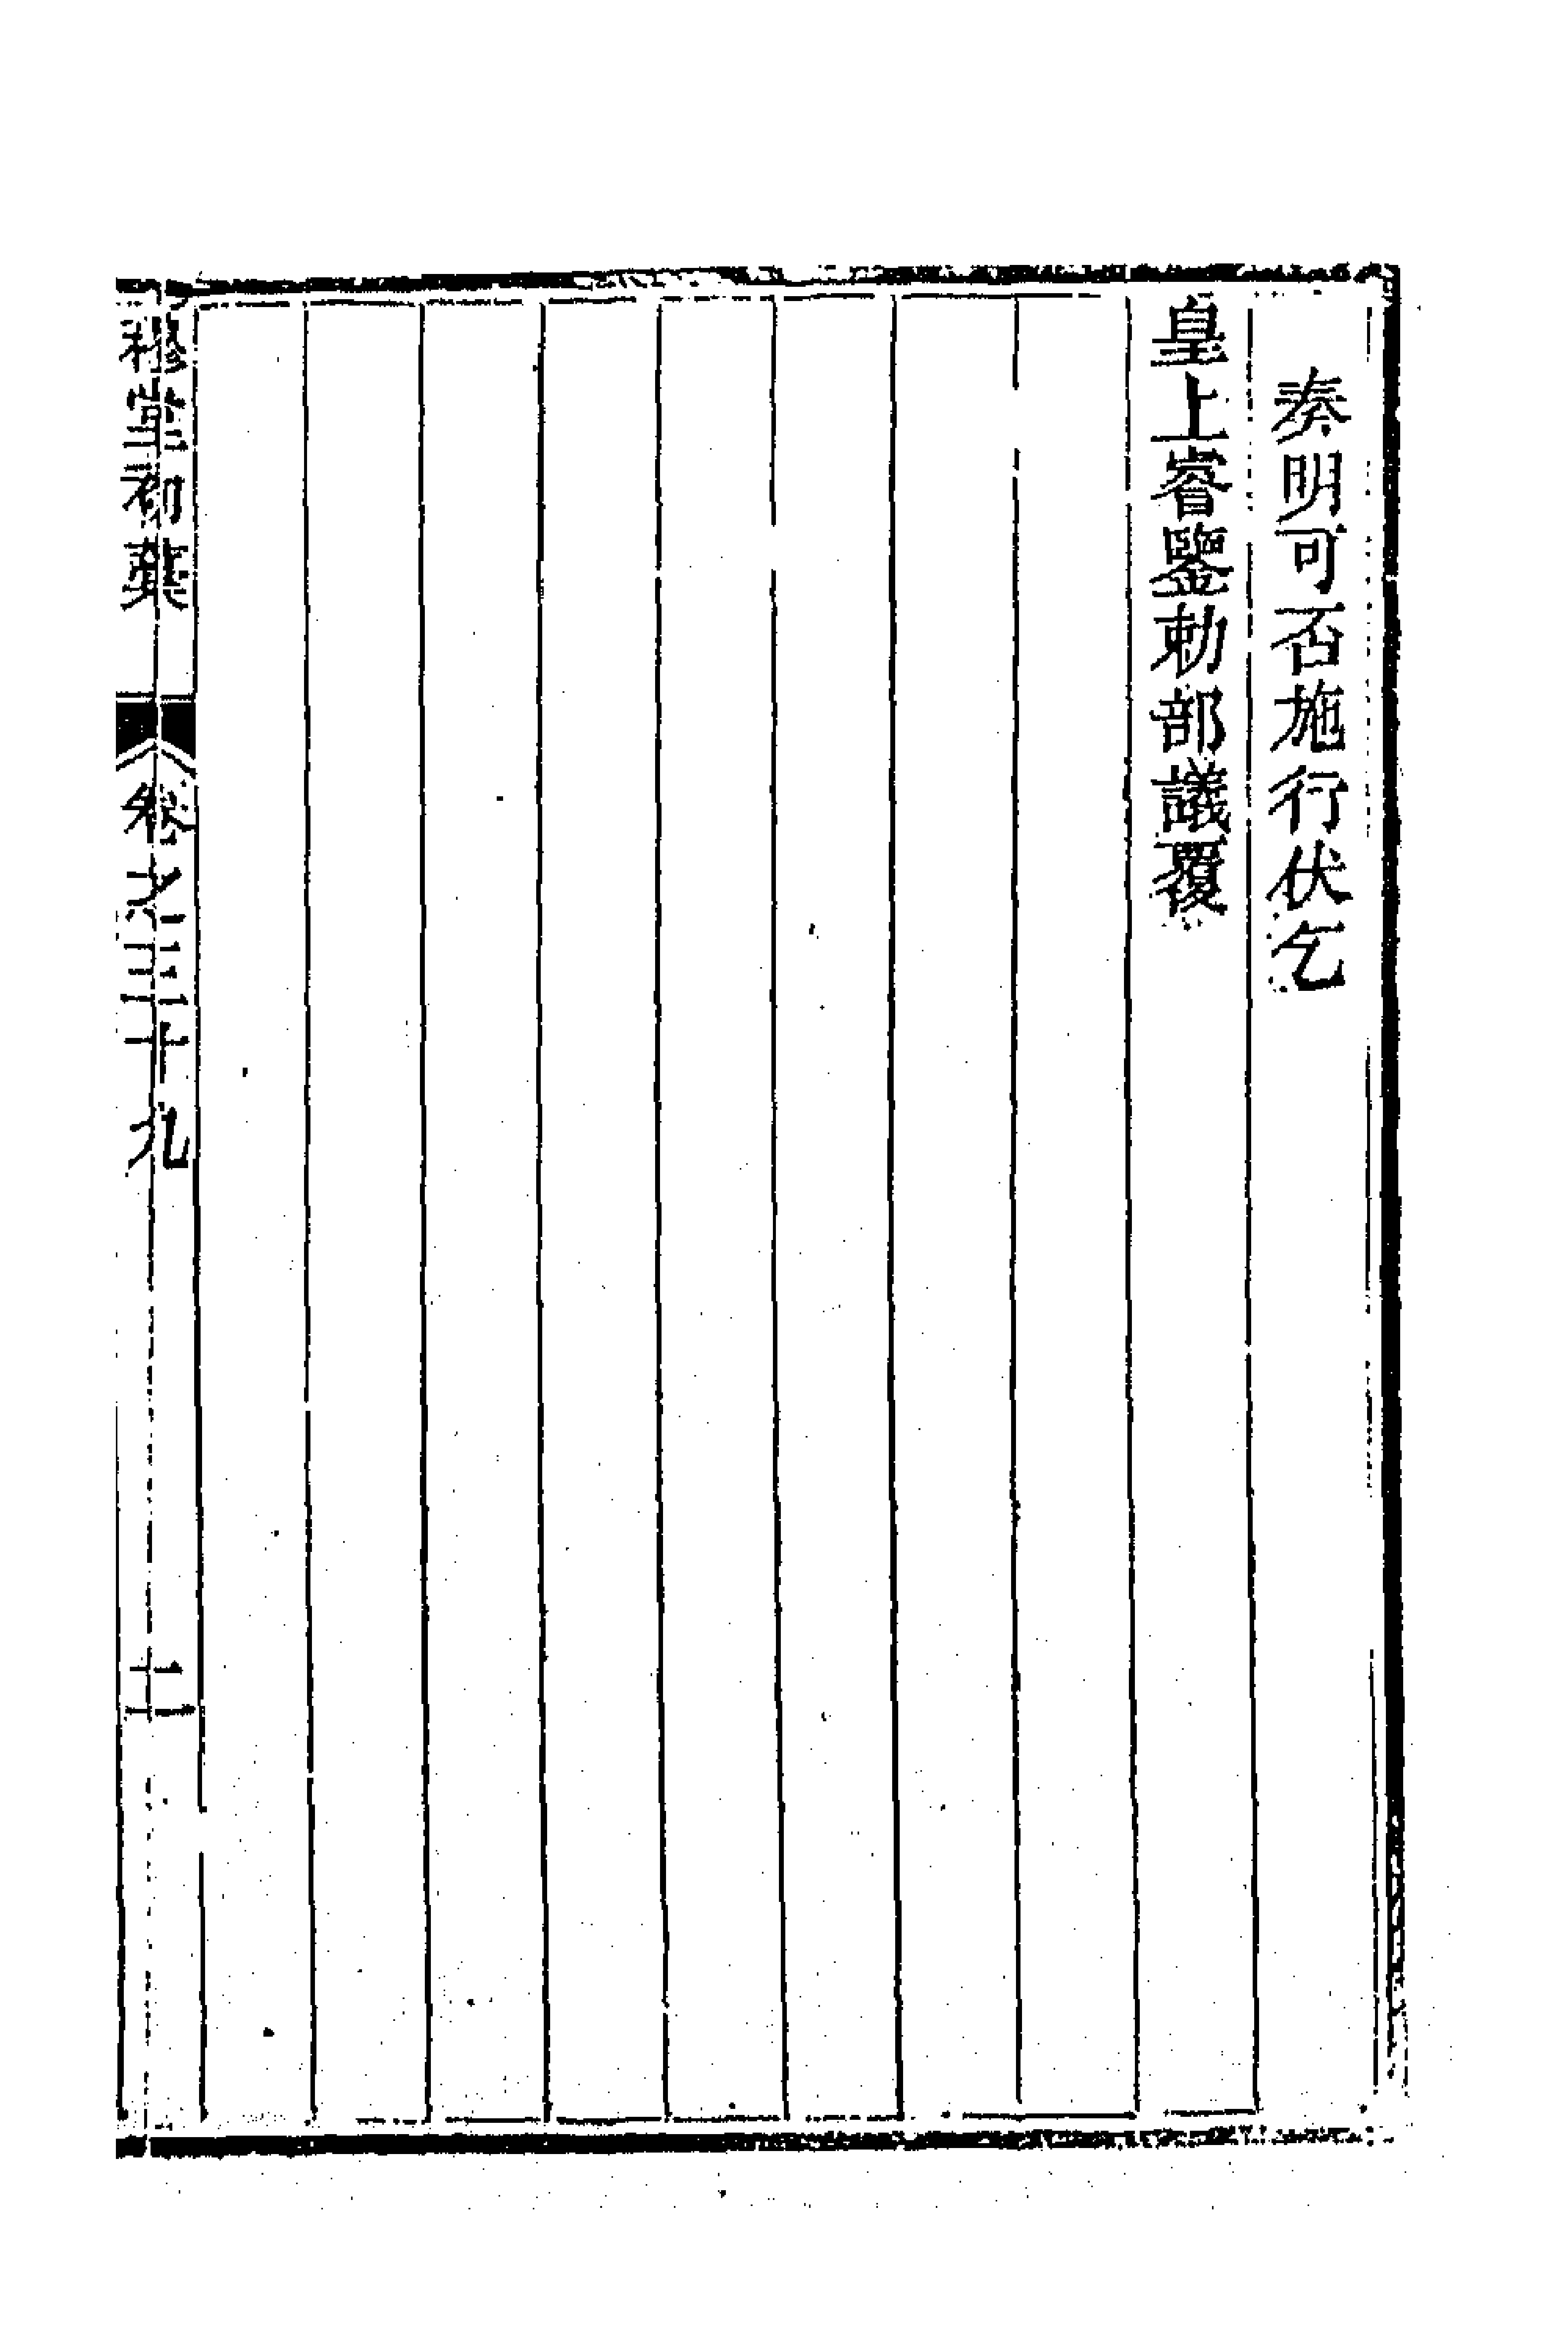 奏明可否施行伏乞
皇上睿鑒勅部議覆
穆堂初藁
卷之三十九
十一